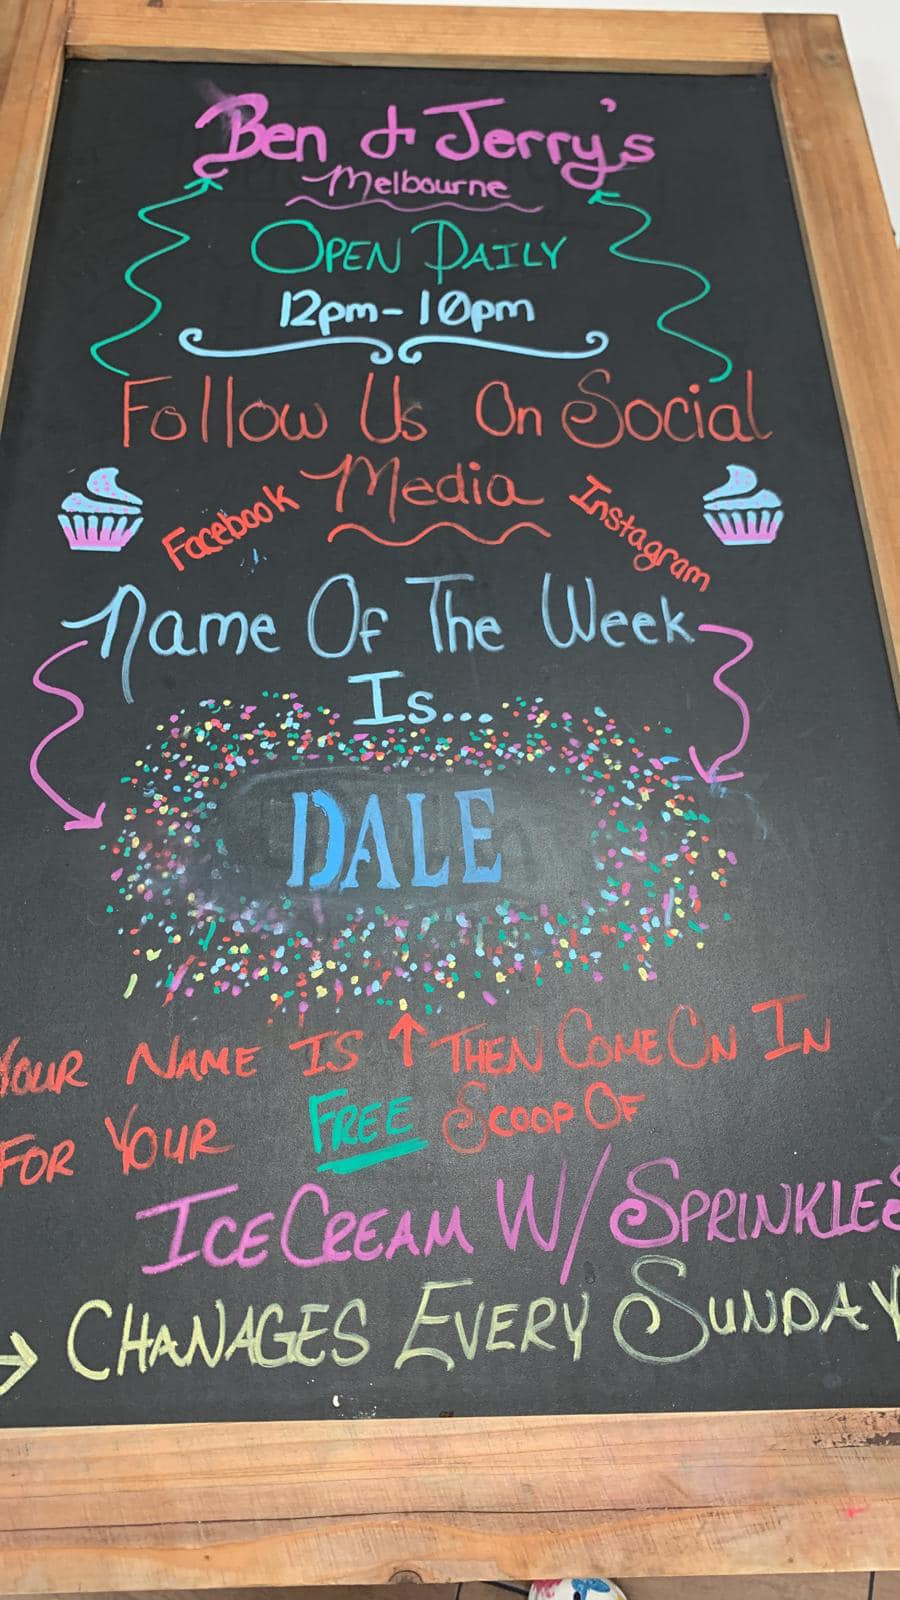 Ben & Jerry's
Melbourne
OPEN DAILY
12pm-10pm
Follow Us On Social
Media
Facebook
Instagram
Name Of The Week
Is...
DALE
YOUR NAME IS ↑ THEN COME ON IN
FOR YOUR FREE SCOOP OF
ICE CREAM W/ SPRINKLES
→ CHANAGES EVERY SUNDAY